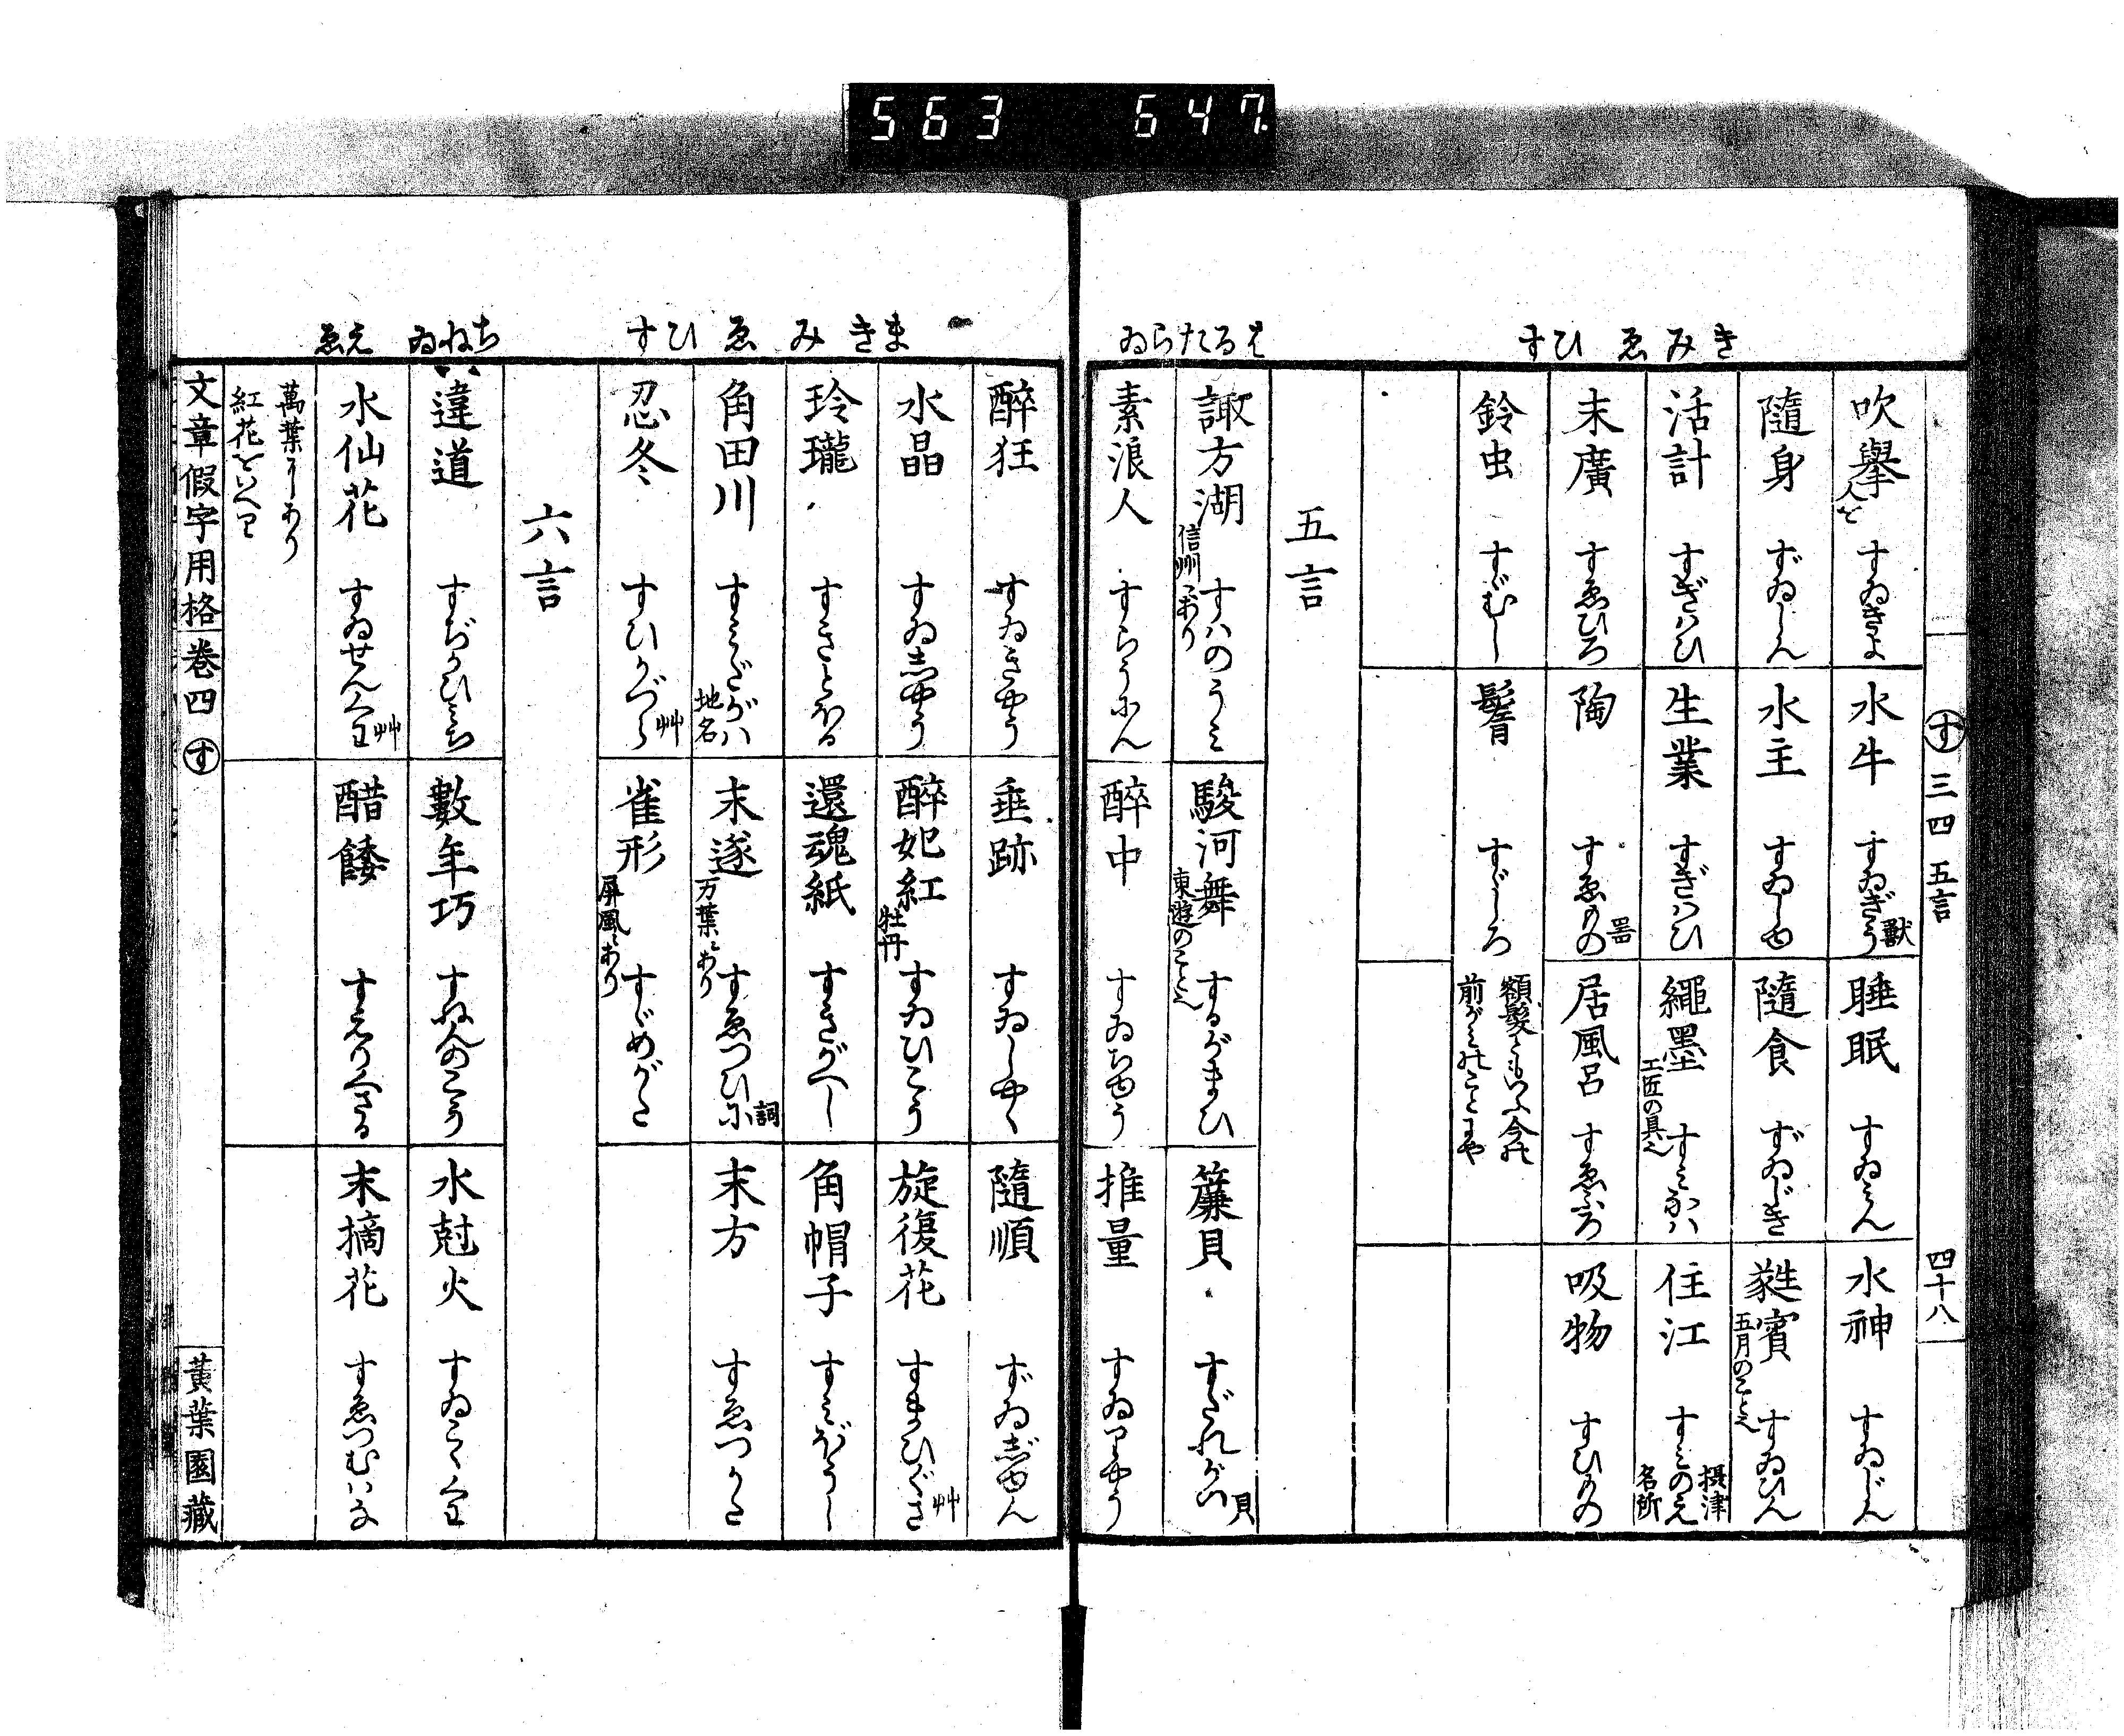 563 647.
きみゑひす
はるたらゐ
す 三四 五言 四十八
吹擧 人を すゐきよ
水牛 すゐぎう 獸
睡眠 すゐみん
水神 すゐじん
隨身 ずゐしん
水主 すゐしゆ
隨食 ずゐじき
蕤賓 五月のこと也 すゐひん
活計 すぎはひ
生業 すぎはひ
繩墨 工匠の具也 すみなは
住江 すみのえ 摂津名所
末廣 すゑひろ
陶 すゑもの 器
居風呂 すゑふろ
吸物 すひもの
鈴虫 すゞむし
鬠 すゞしろ
額髪ともいふ今の
前がみのことにや
五言
諏方湖 信州にあり すはのうみ
駿河舞 東遊のこと也 するがまひ
簾貝 すだれがい 貝
素浪人 すらうにん
醉中 すゐちゆう
推量 すゐりやう
まきみゑひす
ちねゐ
えゑ
醉狂 すゐきやう
垂跡 すゐしやく
隨順 ずゐじゆん
水晶 すゐしやう
醉妃紅 牡丹 すゐひこう
旋復花 すまひぐさ 艸
玲瓏 すきとほる
還魂紙 すきがへし
角帽子 すみばうし
角田川 すみだがは 地名
末遂 万葉にあり すゑつひに 詞
末方 すゑつかた
忍冬 すひかづら 艸
雀形 屏風にあり すゞめがた
六言
違道 すぢかひみち
數年巧 すねんのこう
水尅火 すゐこくくわ
水仙花 すゐせんくわ 艸
醋餧 すえりくさる
末摘花 すゑつむはな
萬葉にあり
紅花をいへり
文章假字用格 卷四 す 黄葉園藏